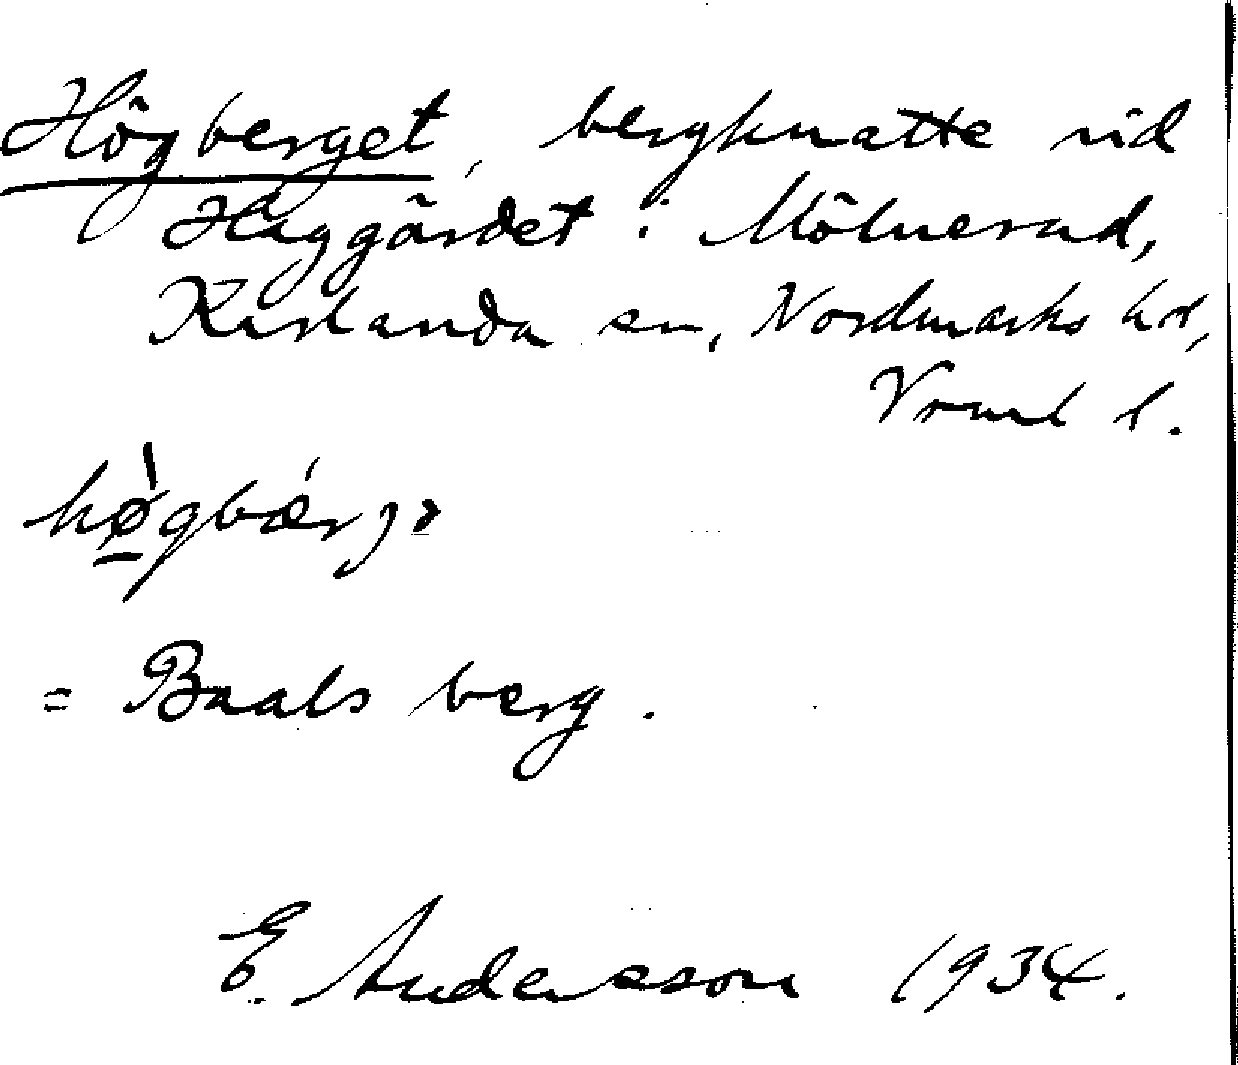 Högberget, bergknatte vid
Haggärdet i Mölnerud,
Karlanda sn, Nordmarks hd,
Vrml l.
hø̱̀gbǽrjə
= Baals berg.
E. Andersson 1934.